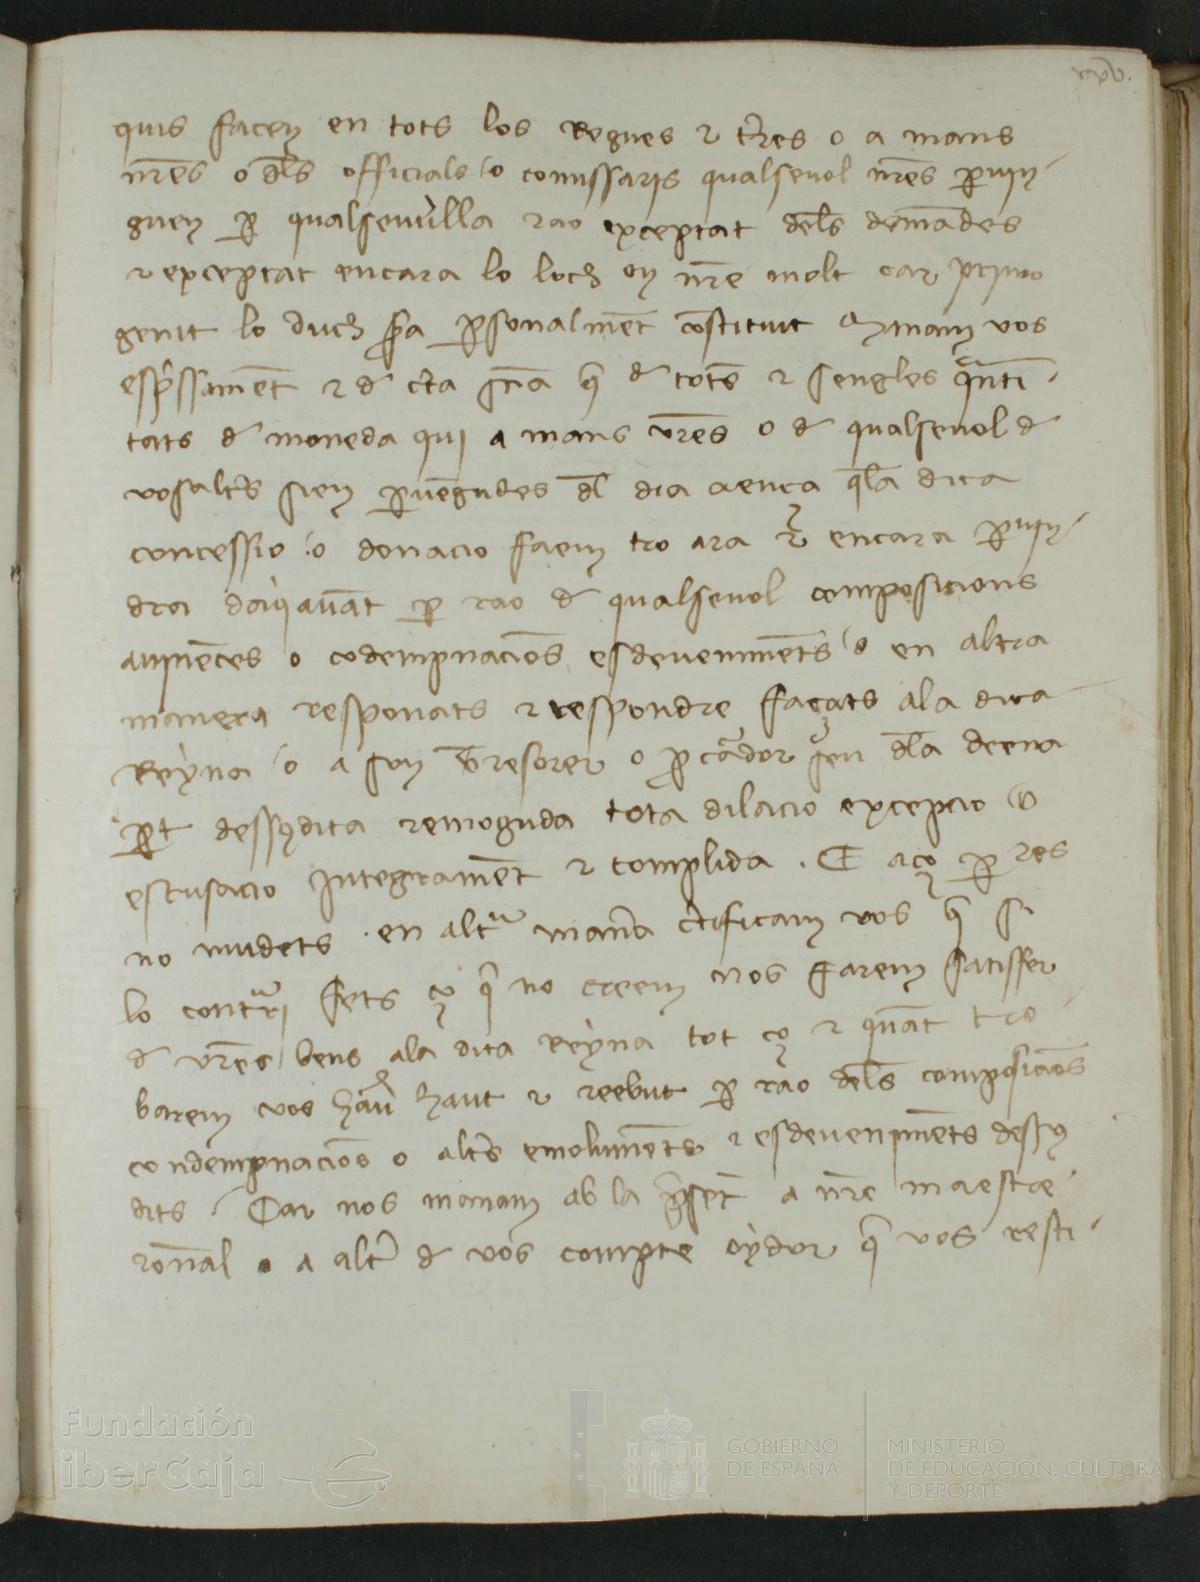 xxv.
quis facen en tots los Regnes ⁊ t̃res o a mans
nr̃es o dl̃s officials /o comissaris qualseuol nr̃es p̱uin-
guen p̱ qualseuulla rao exceptat dels demãdes
⁊ exceptat encara lo loch on nr̃e molt car primo
genit lo duch sia p̱sonalmẽt cõstituit Manam vos
esp̃ssamẽt ⁊ d c̃ta sc̃a q̃ d totes ⁊ sengles quãti-
tats d moneda qui a mans vr̃es o d qualseuol d
vosalt̃s sien p̱uẽgudes dl dia aença q̃la dita
concessio /o donacio faem tro ara ⁊ encara p̱uin-
dra daqiauãt p̱ rao d qualseuol composicions
auinẽces o cõdempnacions esdeueniments /o en altra
manera responats ⁊ respondre façats ala dita
Reyna /o a son tresorer o p̱curador seu dla deena
p̱t dessusdita remoguda tota dilacio excepcio /o
escusacio integramẽt ⁊ complida . E aço p̱ res
no mudets . en altra manã c̃tificam vos q̃ si
lo contrari fets ço q̃ no creem nos farem satisffer
d vr̃es bens ala dita Reyna tot ço ⁊ quãt tro
barem vos hauer haut ⁊ reebut p̱ rao dels composiciõs
condempnaciõs o alt̃s emolumẽts ⁊ esdeuenimẽts dessus
dits / Car nos manam ab la p̃sẽt a nr̃e maestre
rõnal o a alt̃ d vos compte oydor q̃ vos resti-
Fundación
iberCaja
GOBIERNO
DE ESPAÑA
MINISTERIO
DE EDUCACIÓN, CULTURA
Y DEPORTE